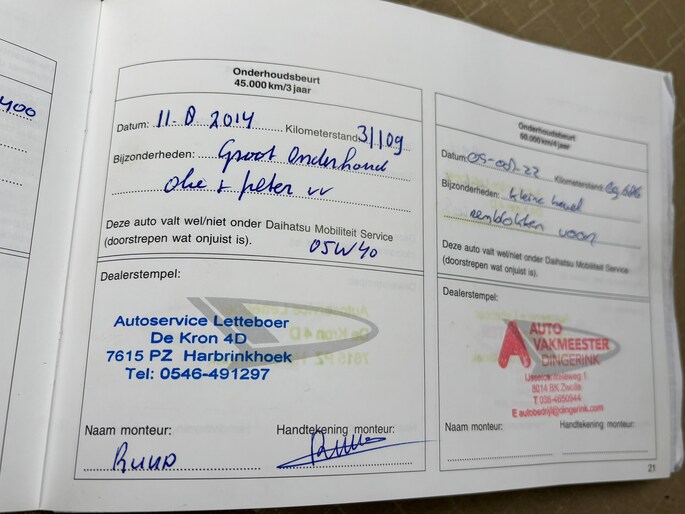 400
Onderhoudsbeurt
45.000 km/3 jaar
Datum: 11-8 2014 Kilometerstand 31109
Bijzonderheden: Groot Onderhoud
olie + filter vv
Deze auto valt wel/niet onder Daihatsu Mobiliteit Service
(doorstrepen wat onjuist is). 05W40
Dealerstempel:
Autoservice Letteboer
De Kron 4D
7615 PZ Harbrinkhoek
Tel: 0546-491297
Naam monteur: Handtekening monteur:
Ruud
Onderhoudsbeurt
60.000 km/4 jaar
Datum: Kilometerstand:
Bijzonderheden: kleine beurt
remblokken voor
Deze auto valt wel/niet onder Daihatsu Mobiliteit Service
(doorstrepen wat onjuist is).
Dealerstempel:
AUTO
VAKMEESTER
DINGERINK
8014 BK Zwolle
T 038-4650944
E autobedrijf@dingerink.com
Naam monteur: Handtekening monteur:
21